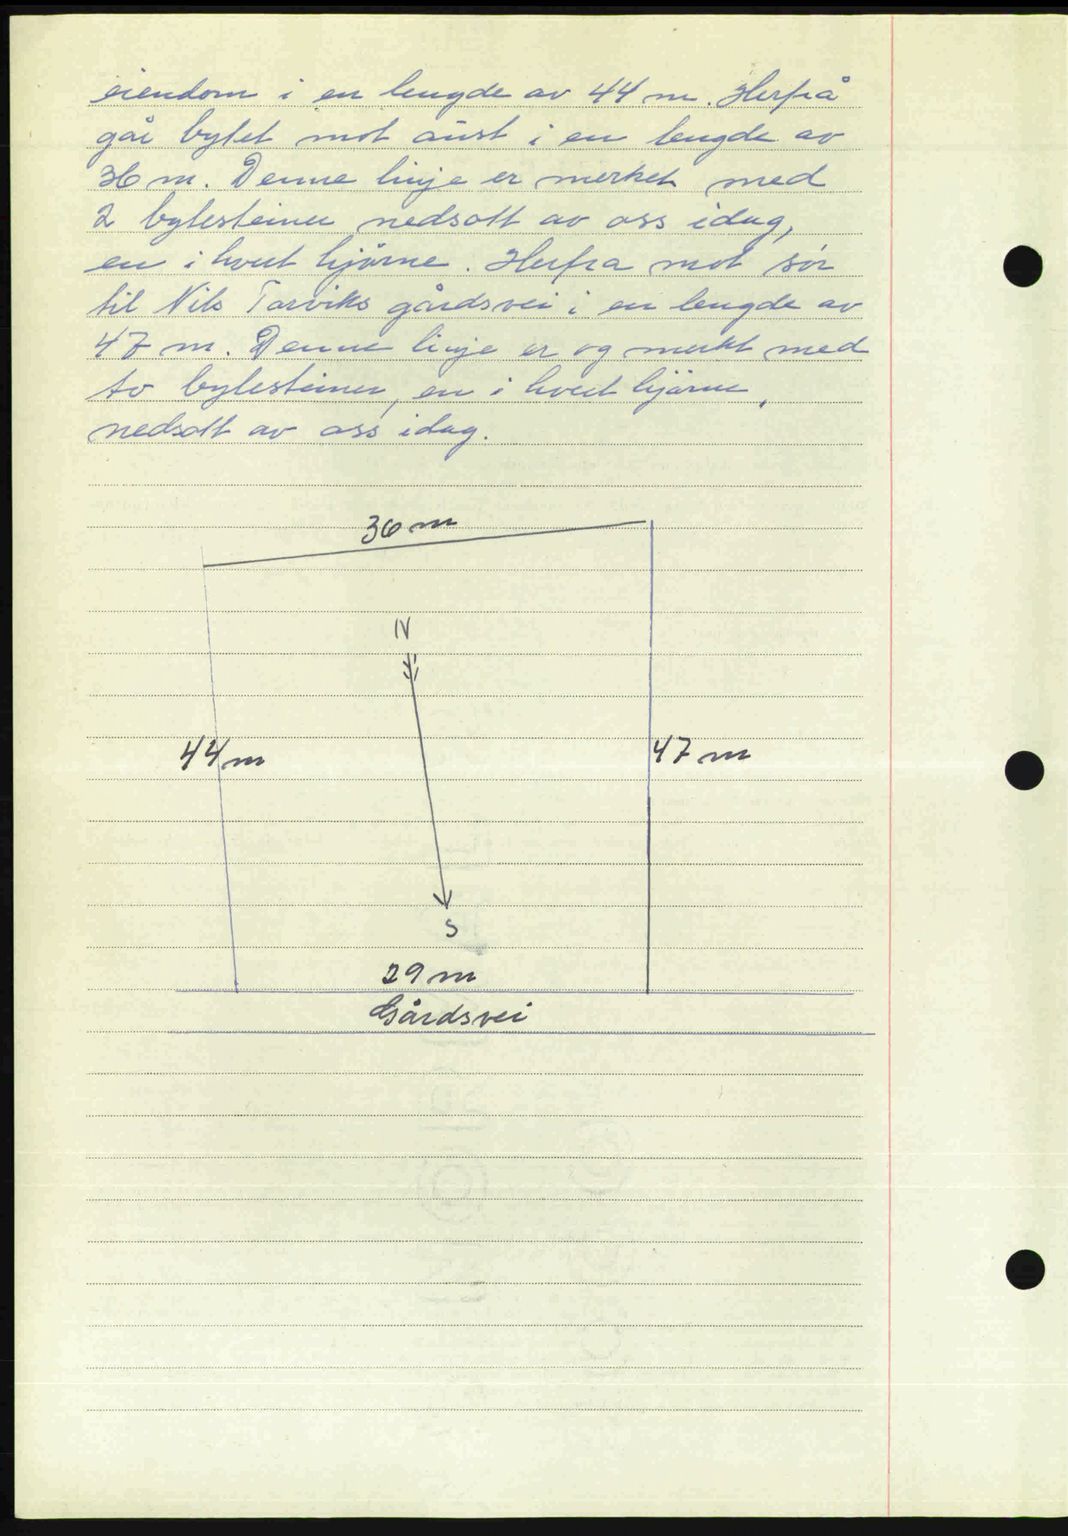 eiendom i en lengde av 44 m. Herfrå
går bytet mot aust i en lengde av
36 m. Denne linje er merket med
2 bytesteiner nedsatt av oss idag,
en i hvert hjørne. Herfra mot sør
til Nils Tarviks gårdsvei i en lengde av
47 m. Denne linje er og merkt med
to bytesteiner, en i hvert hjørne,
nedsatt av oss idag.
36 m
N
44 m
47 m
S
29 m
Gårdsvei